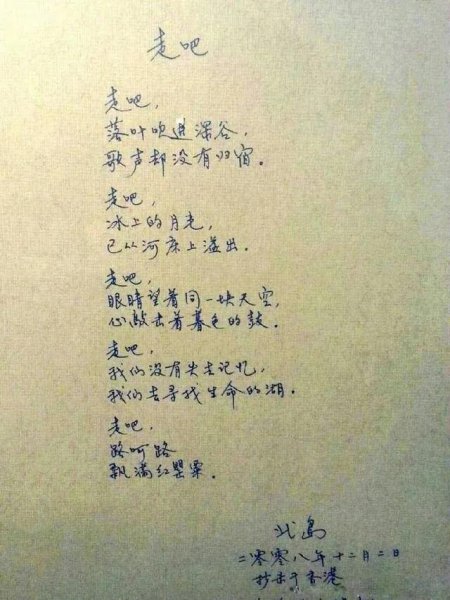 走吧
走吧，
落叶吹进深谷，
歌声却没有归宿。
走吧，
冰上的月光，
已从河床上溢出。
走吧，
眼睛望着同一块天空，
心敲击着暮色的鼓。
走吧，
我们没有失去记忆，
我们去寻找生命的湖。
走吧，
路呵路
飘满红罂粟。
北岛
二零零八年十二月二日
抄于香港